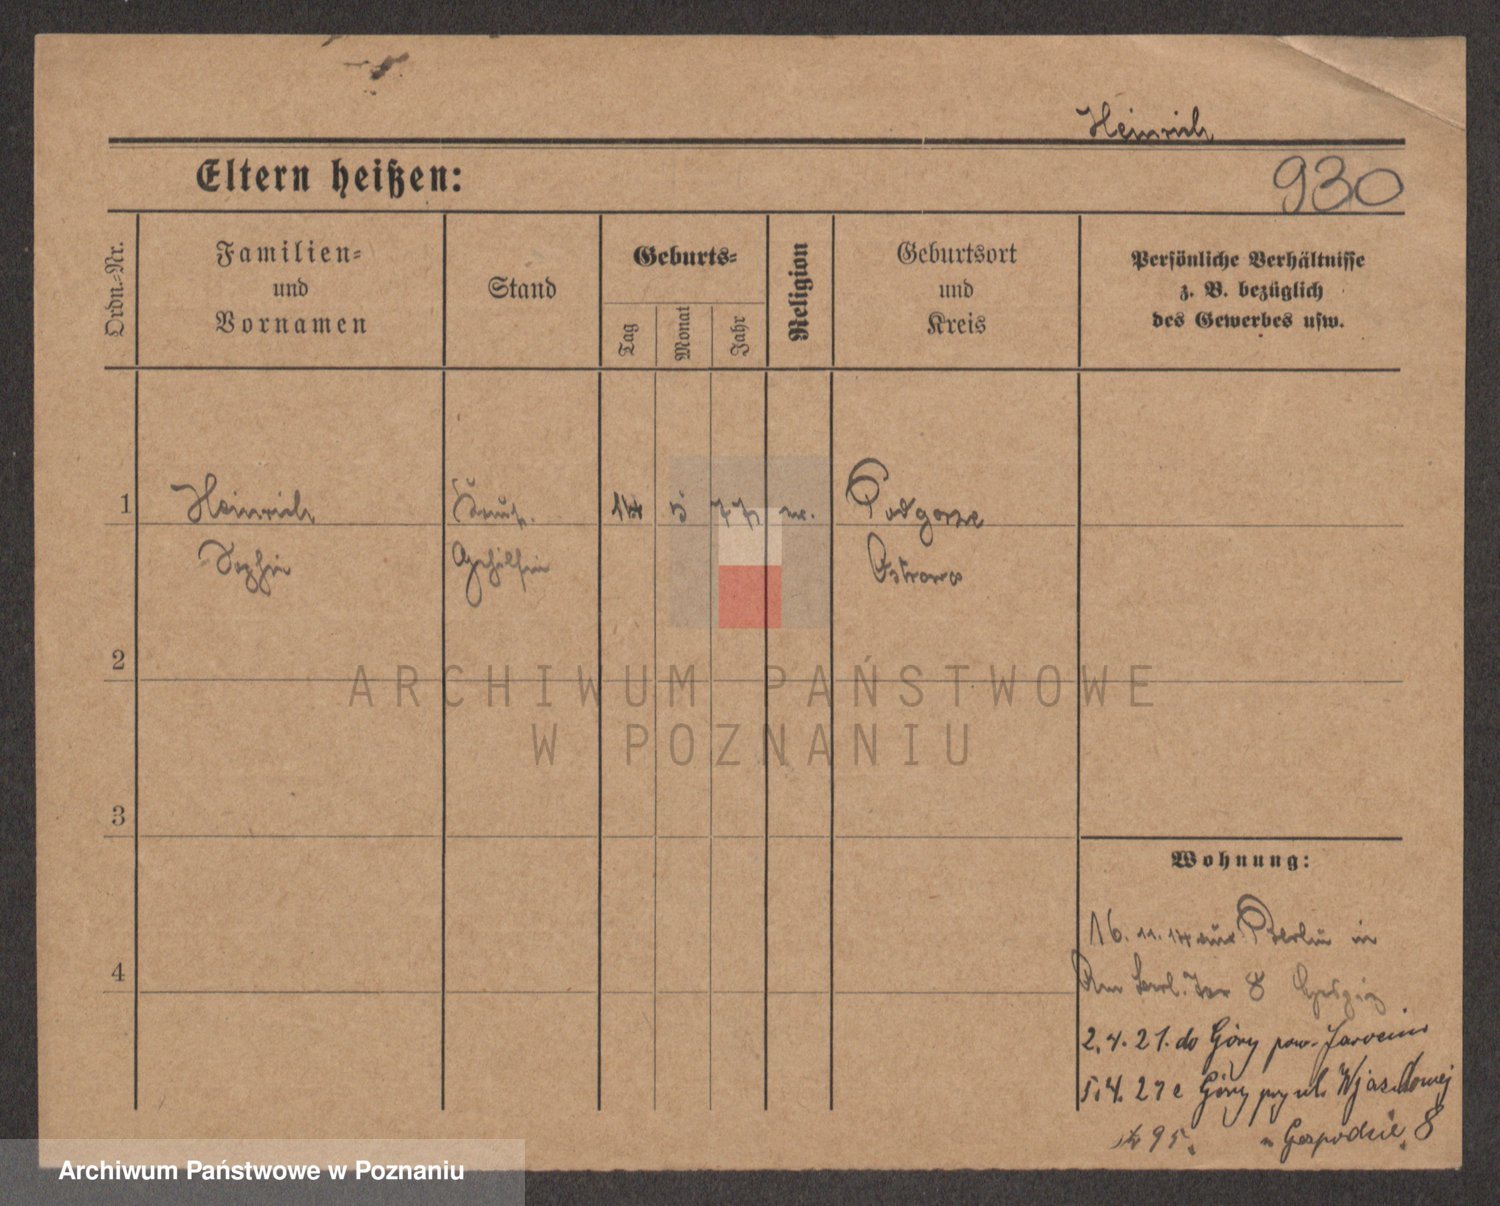 Heinrich
Eltern heißen:
930
Ordn.-Nr.
Familien-
und
Vornamen
Stand
Geburts-
Tag
Monat
Jahr
Religion
Geburtsort
und
Kreis
Persönliche Verhältnisse
z. B. bezüglich
des Gewerbes usw.
1
Heinrich
14 5 77
Podgorze
Sophie
Gehilfin
Ostrowo
2
ARCHIWUM PAŃSTWOWE
W POZNANIU
3
Wohnung:
4
16. 11. 14 aus Berlin in
8
2.4.21. do Góry pow. Jarocin
5.4.21 z Góry przy ul. Wjazdowej
№ 95. u Gospodzie 8
Archiwum Państwowe w Poznaniu